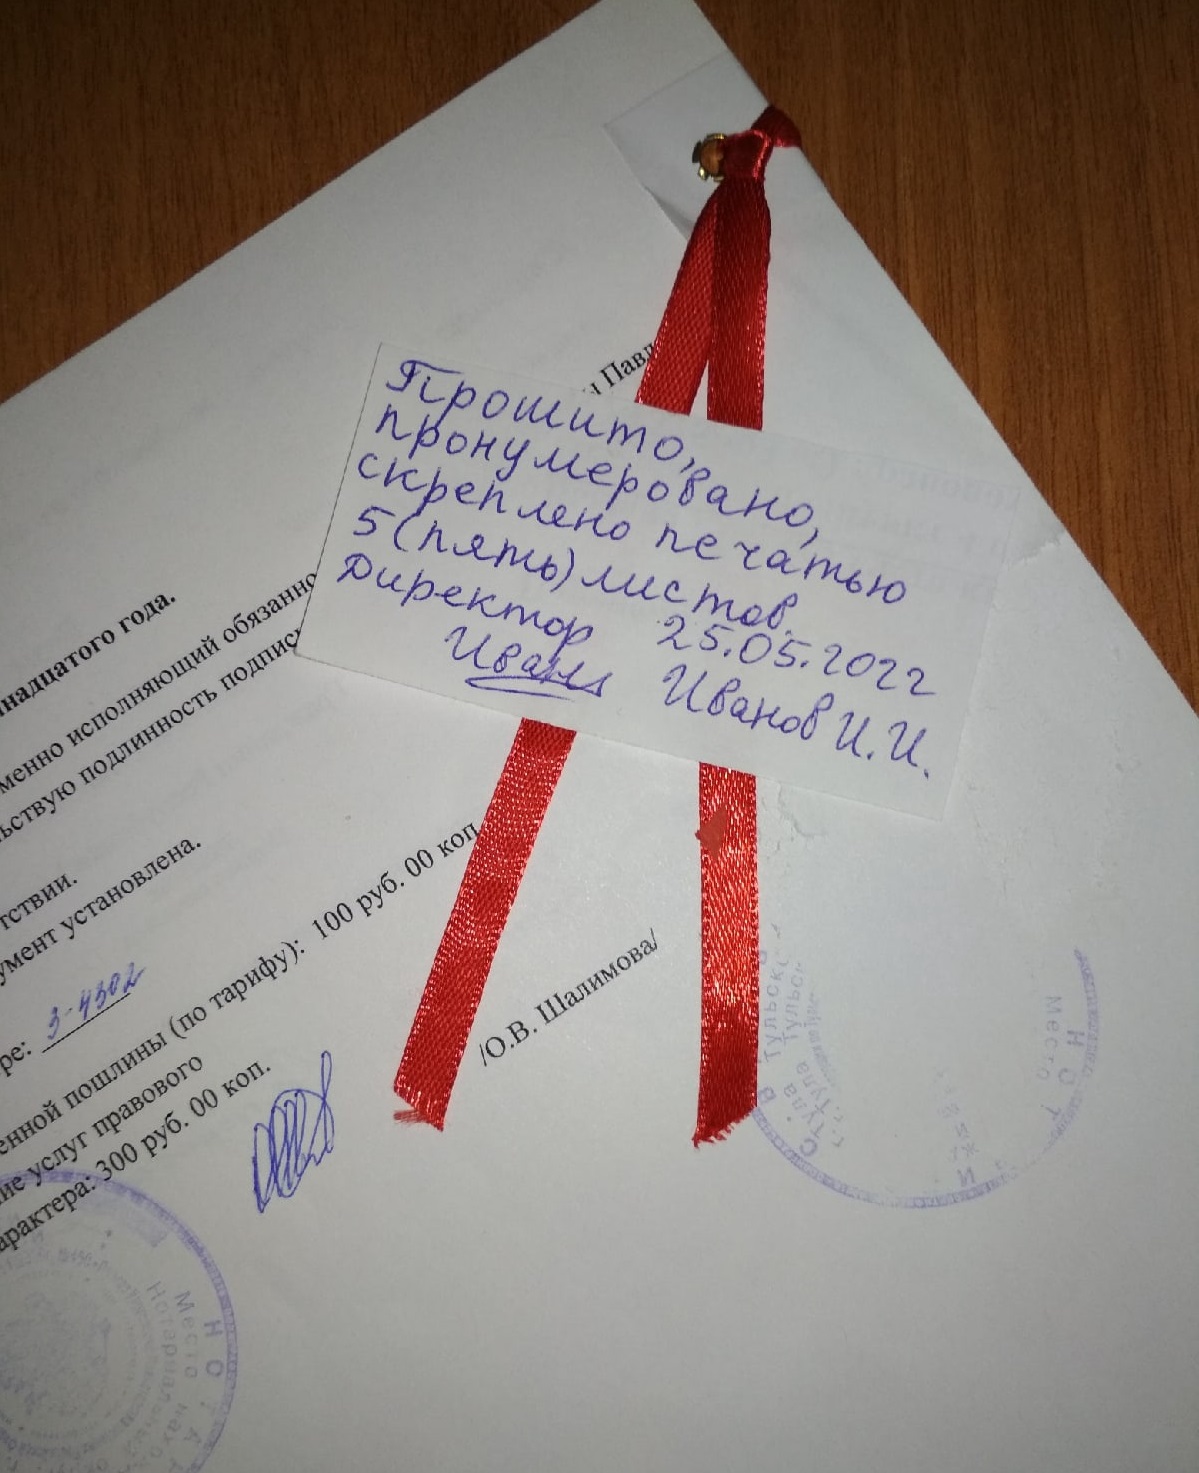 Павл
Прошито,
пронумеровано,
скреплено печатью
5 (пять) листов.
Директор 25.05.2022
Иванов И.И.
надцатого года.
менно исполняющий обязанно
ьствую подлинность подпис
тствии.
умент установлена.
ре: 3-4302
енной пошлины (по тарифу): 100 руб. 00 коп
ие услуг правового
арактера: 300 руб. 00 коп.
/О.В. Шалимова/
Место
Нотариальный
НОТА
Тульск
Тула Тульс
Место
НОТ